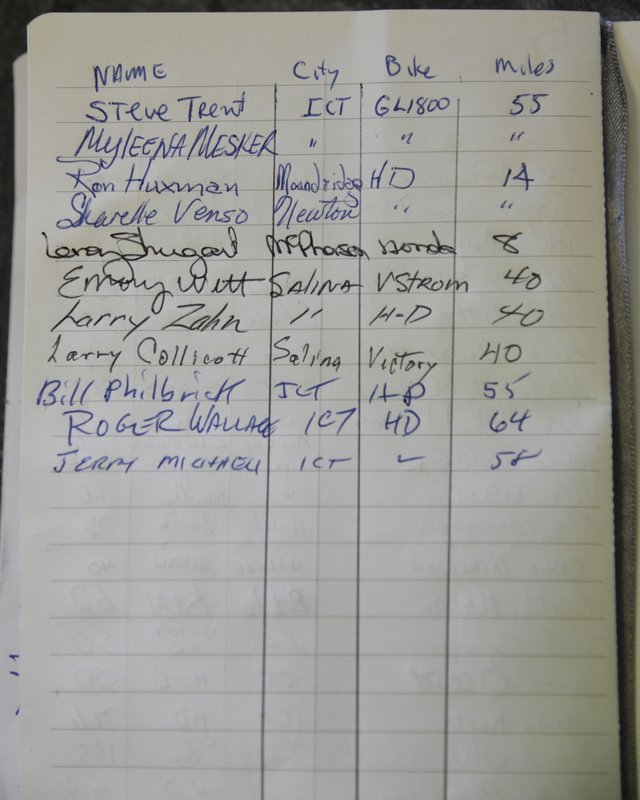 NAME City Bike Miles
STeve TrenT ICT GL1800 55
MyLEENA MESKER " " "
Ron Huxman Moundridge HD 14
Sharelle Venso Newton " "
Leroy Shugart McPherson Honda 8
Emory Witt SALINA VSTrom 40
Larry Zahn " H-D 40
Larry Collicott Salina Victory 40
Bill Philbrick ICT HD 55
ROGER WALLACE ICT HD 64
JERRY MICHAEL ICT 58